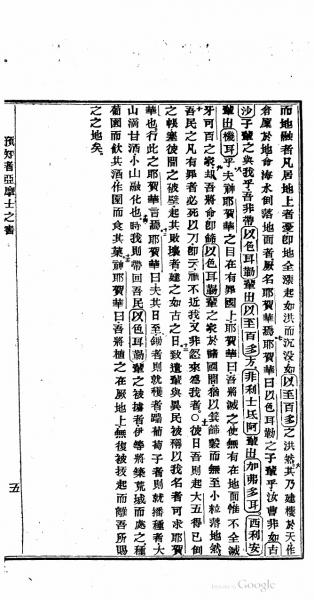 而地融者凡居地上者憂卽地全漲起如洪而沉没如以至百多之洪然其乃建樓於天作
倉窟於地命海水倒落地面者厥名耶賀華焉耶賀華曰以色耳勒之子輩乎汝曹非如古
沙子輩之與我乎吾非帶以色耳勒輩出以至百多又非利士氐阿輩出加弗多耳西利安
輩出機耳乎夫神耶賀華之目在有罪國上耶賀華曰吾將滅之使無有在地面惟不全滅
牙可百之家却吾將命卽篩以色耳勒輩之家於諸國間猶以箕篩穀而無至小粒落地然
吾民之凡有罪者必死以刀卽云準不近我又非忽來感我者○彼日吾則起大五得已倒
之帳塞彼間之破壁起其敗壞者建之如古之日致遺輩與異民被稱以我名者可求耶賀
華也行此之耶賀華言焉耶賀華曰夫其日至鋤者則就穫者踹葡萄子者則就播種者大
山滴甘酒小山融化也時我則帶回吾民以色耳勒輩之被擄者伊等將築荒城而處之種
葡園而飲其酒作園而食其菓神耶賀華曰吾將植之在厥地上無復被拔起而離吾所賜
之之地矣
預知者亞摩士之書
五
Google